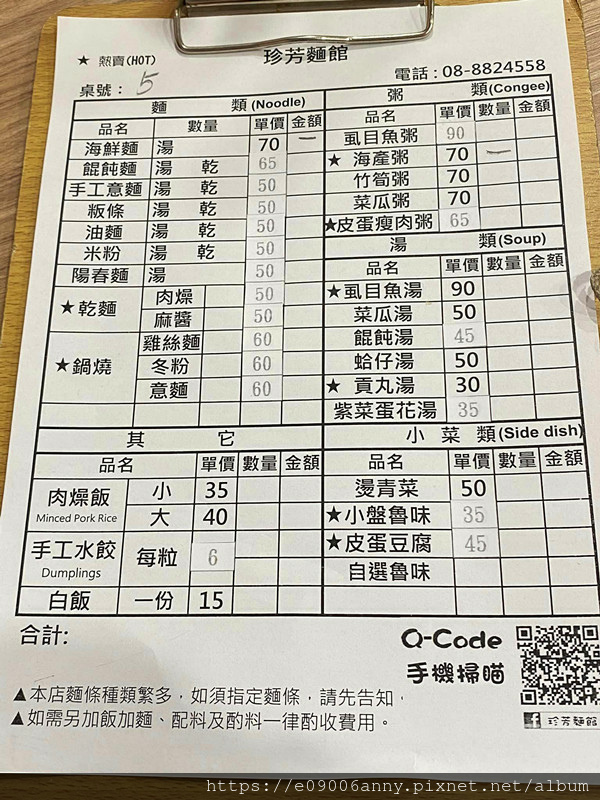 ★ 熱賣(HOT)
珍芳麵館
桌號： 5
電話：08-8824558
麵 類 (Noodle)
品名 數量 單價 金額
海鮮麵 湯 70 一
餛飩麵 湯 乾 65
手工意麵 湯 乾 50
粄條 湯 乾 50
油麵 湯 乾 50
米粉 湯 乾 50
陽春麵 湯 50
★乾麵 肉燥 50
麻醬 50
★鍋燒 雞絲麵 60
冬粉 60
意麵 60
粥 類(Congee)
品名 單價 數量 金額
虱目魚粥 90
★ 海產粥 70 一
竹筍粥 70
菜瓜粥 70
★皮蛋瘦肉粥 65
湯 類(Soup)
品名 單價 數量 金額
★虱目魚湯 90
菜瓜湯 50
餛飩湯 45
蛤仔湯 50
★ 貢丸湯 30
紫菜蛋花湯 35
其 它
品名 單價 數量 金額
肉燥飯 小 35
Minced Pork Rice 大 40
手工水餃 每粒 6
Dumplings
白飯 一份 15
小 菜 類 (Side dish)
品名 單價 數量 金額
燙青菜 50
★小盤魯味 35
★皮蛋豆腐 45
自選魯味
合計:
Q-Code
手機掃瞄
▲本店麵條種類繁多，如須指定麵條，請先告知，
▲如需另加飯加麵、配料及酌料一律酌收費用。
f 珍芳麵館
https://e09006anny.pixnet.net/album